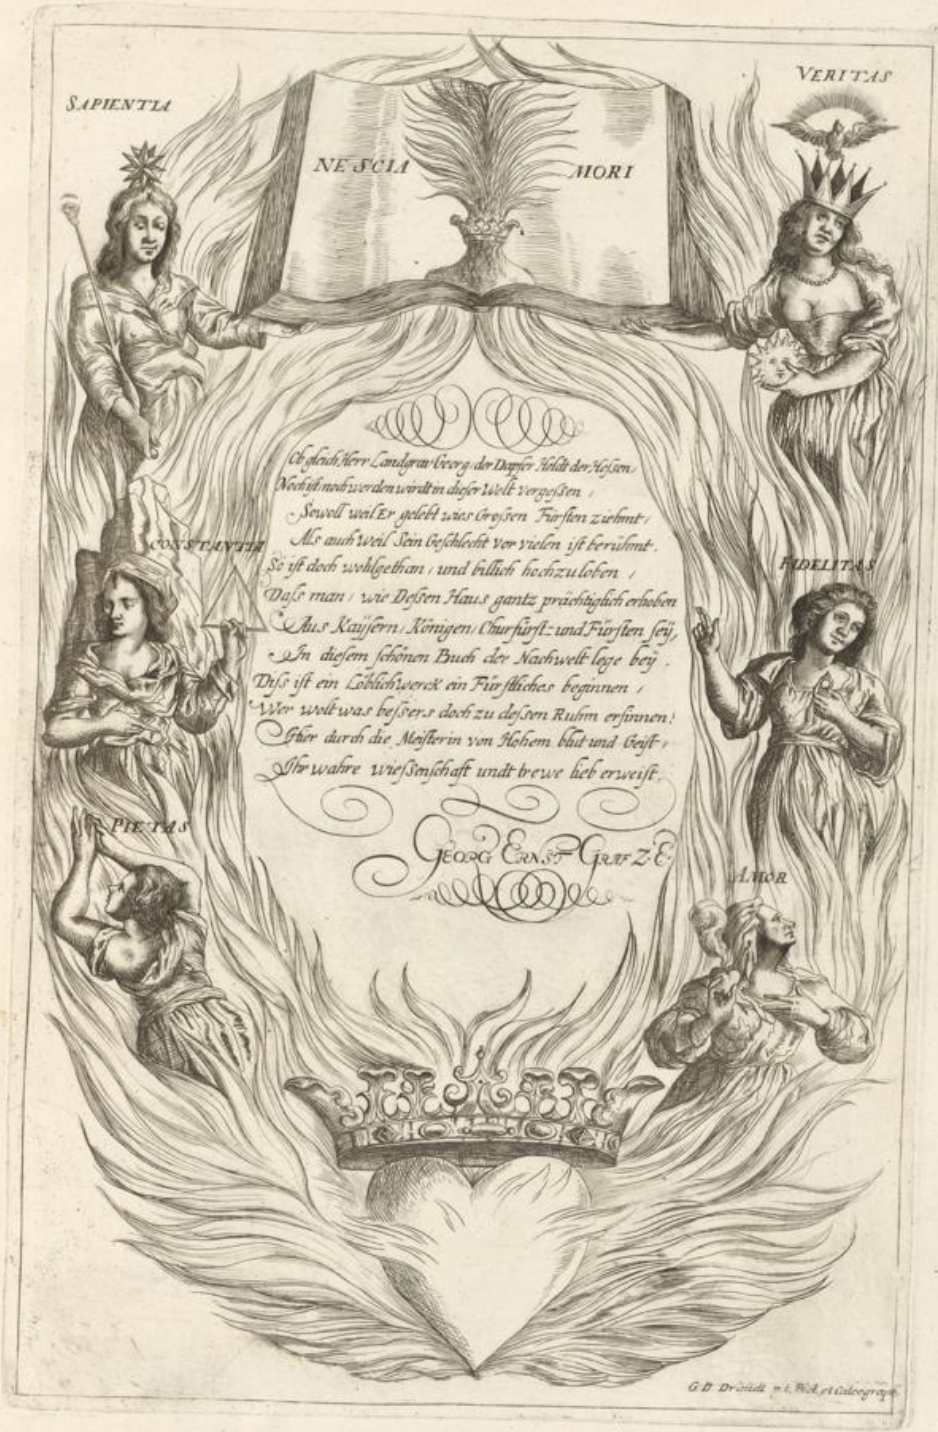 SAPIENTIA
VERITAS
NESCIA MORI
Ob gleich Herr Landgrav Georg, der Dapfer Heldt der Hessen,
Noch ist noch werden wirdt in dieser Welt vergessen,
Sowoll weil Er gelebt wies Grossen Fürsten ziehmt,
Als auch weil Sein Geschlecht vor vielen ist berühmt.
So ist doch wohlgethan, und billich hochzuloben,
Dass man, wie Dessen Haus gantz prächtiglich erhoben
Aus Kaÿsern, Königen, Churfürst- und Fürsten seÿ,
In diesem schönen Buch der Nachwelt lege beÿ.
Diss ist ein Löblich werck ein Fürstliches beginnen,
Wer wolt was bessers doch zu dessen Ruhm ersinnen!
Hier durch die Meisterin von Hohem blut und Geist,
Ihr wahre wiessenschaft undt trewe lieb erweist.
GEORG ERNST GRAF Z. E.
CONSTANTIA
FIDELITAS
PIETAS
AMOR
G. D. et Calcograp.